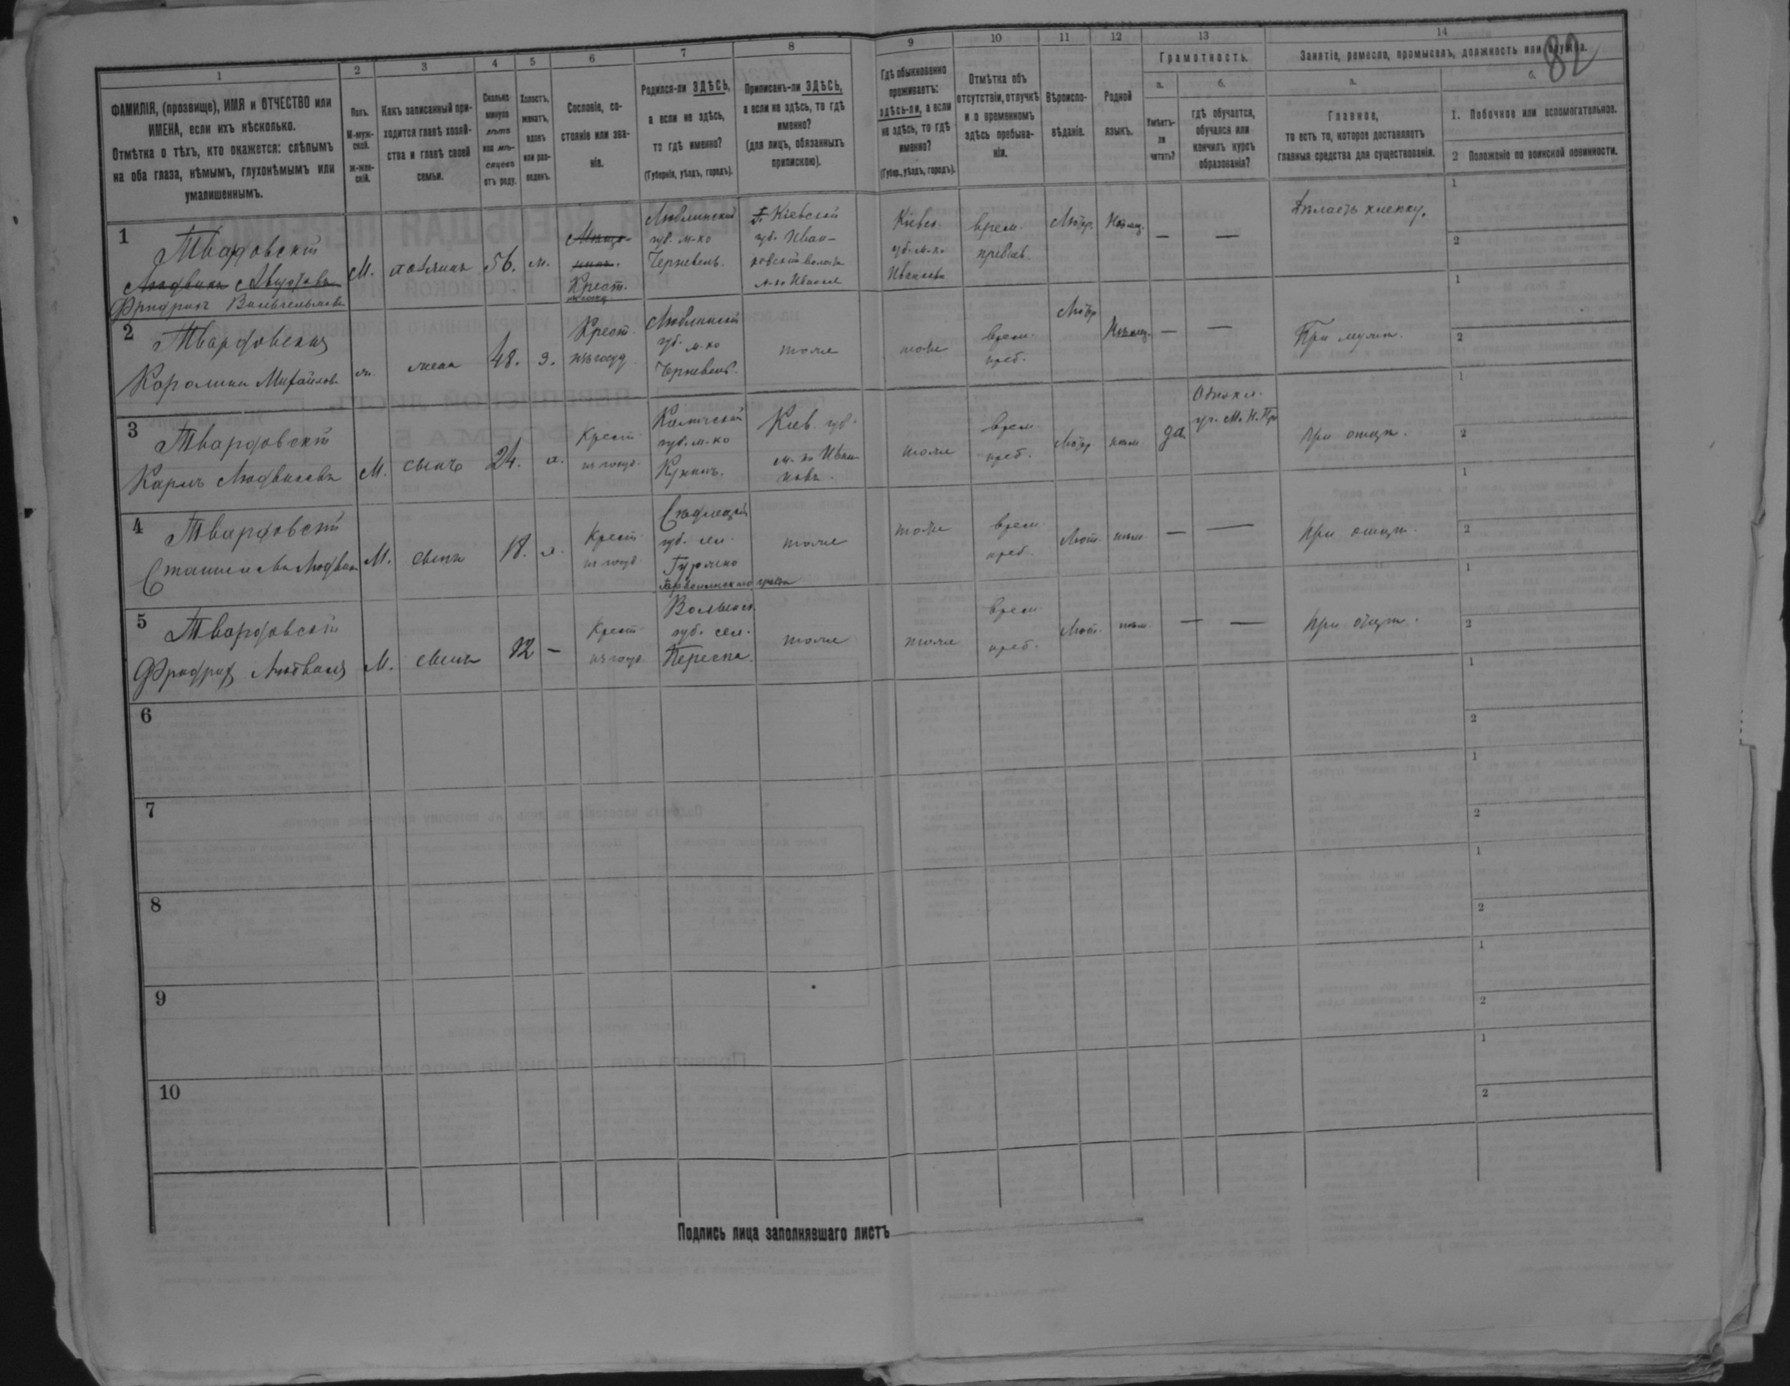 82
1 2 3 4 5 6 7 8 9 10 11 12 13 14
ФАМИЛІЯ, (прозвище), ИМЯ и ОТЧЕСТВО или
ИМЕНА, если ихъ нѣсколько.
Отмѣтка о тѣхъ, кто окажется: слѣпымъ
на оба глаза, нѣмымъ, глухонѣмымъ или
умалишеннымъ.
Полъ.
М-муж-
ской.
Ж-жен-
скій.
Какъ записанный при-
ходится главѣ хозяй-
ства и главѣ своей
семьи.
Сколько
минуло
лѣтъ
или мѣ-
сяцевъ
отъ роду.
Холостъ,
женатъ,
вдовъ
или раз-
веденъ.
Сословіе, со-
стояніе или зва-
ніе.
Родился-ли ЗДѢСЬ,
а если не здѣсь,
то гдѣ именно?
(Губернія, уѣздъ, городъ).
Приписанъ-ли ЗДѢСЬ,
а если не здѣсь, то гдѣ
именно?
(для лицъ, обязанныхъ
припискою).
Гдѣ обыкновенно
проживаетъ:
здѣсь-ли, а если
не здѣсь, то гдѣ
именно?
(Губер., уѣздъ, городъ).
Отмѣтка объ
отсутствіи, отлучкѣ
и о временномъ
здѣсь пребыва-
ніи.
Вѣроиспо-
вѣданіе.
Родной
языкъ.
Грамотность.
а.
Умѣетъ-
ли
читать?
б.
гдѣ обучается,
обучался или
кончилъ курсъ
образованія?
Занятіе, ремесло, промыселъ, должность или служба.
а.
Главное,
то есть то, которое доставляетъ
главныя средства для существованія.
б.
1. Побочное или вспомогательное.
2 Положеніе по воинской повинности.
1
Твардовскій
Фридрихъ
М. хозяинъ 56. ж.
Крест.
Люблинской
губ. м-ко
Кіевской
губ. Иван-
ковской волости
м-ко Иванков
Кіевск.
губ. м-ко
Иванковъ
врем.
пребыв.
Лютр. Нѣмец. — —
Дѣлаетъ клепку.
1
2
2
Твардовская
Каролина Михайлов.
ж. жена 48. з.
Крест.
Люблинской
губ. м-ко
тоже тоже
врем.
преб.
Лютр. Нѣмец. — —
При мужѣ.
1
2
3
Твардовскій
Карлъ Людвиговъ
М. сынъ 24. х.
Крест.
губ. м-ко
Кіев. губ.
м-ко Иван-
ковъ.
тоже
врем.
преб.
Лютр. нѣм. да
Однокл.
уч. М. Н. Пр.
При отцѣ.
1
2
4
Твардовскій
Станиславъ Людвиг.
М. сынъ 18. х.
Крест.
Сѣдлецкой
губ. сел.
тоже тоже
врем.
преб.
Лют. нѣм. — —
При отцѣ.
1
2
5
Твардовскій
Фридрих
М. сынъ 12 —
Крест.
Волынск.
губ. сел.
Пересна.
тоже тоже
врем.
преб.
Лют. нѣм. — —
При отцѣ.
1
2
6
1
2
7
1
2
8
1
2
9
1
2
10
1
2
Подпись лица заполнявшаго листъ